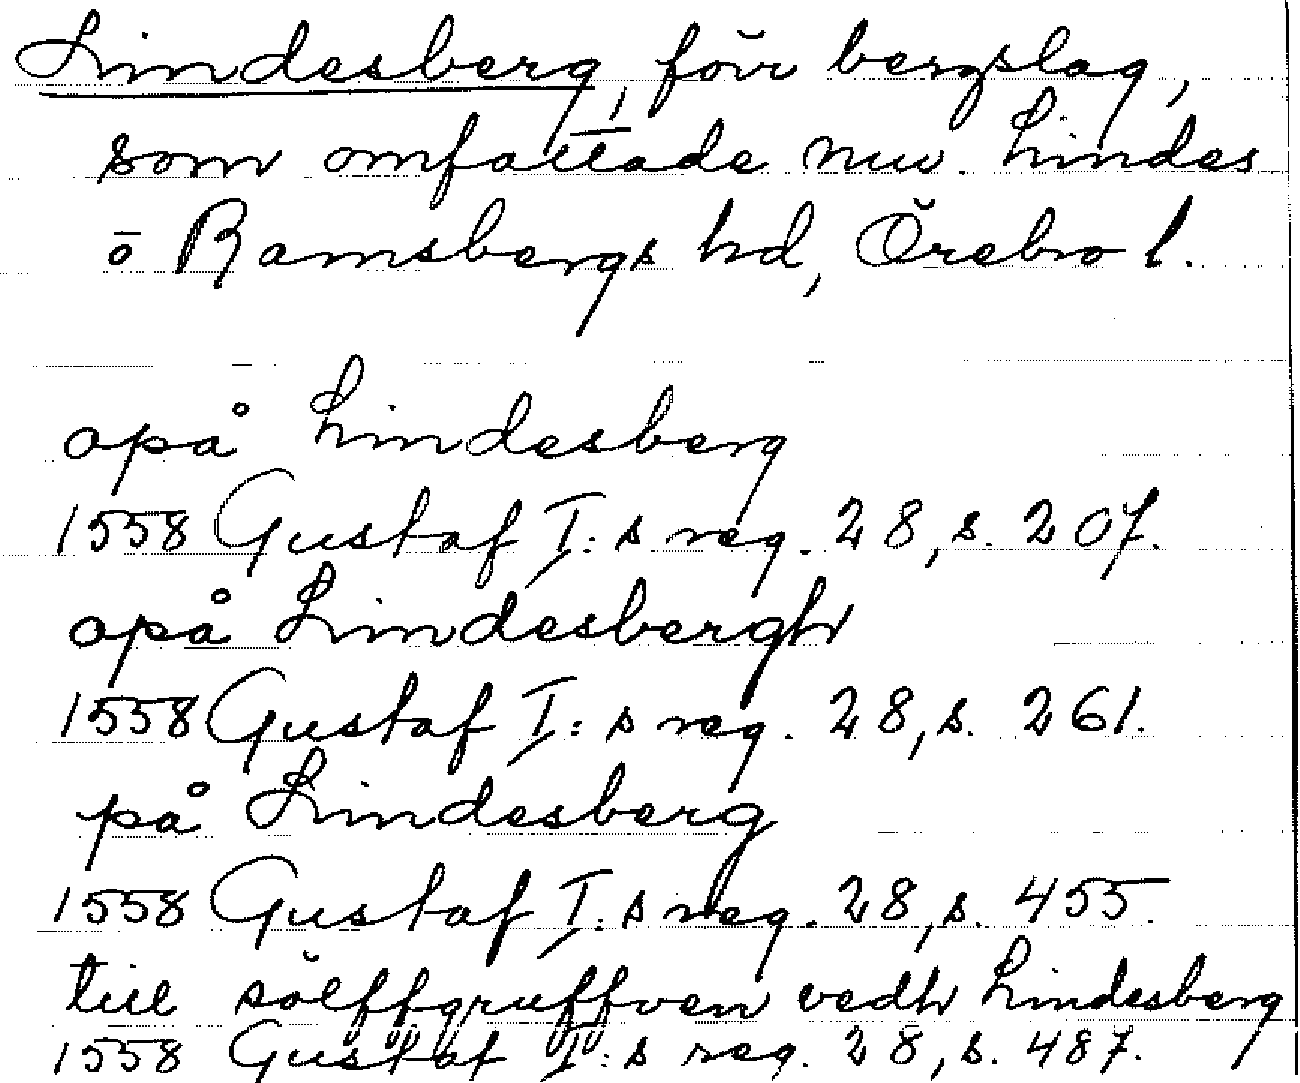 Lindesberg, förr bergslag,
som omfattade nuv. Lindes
o Ramsbergs hd, Örebro l.
opå Lindesberg
1558 Gustaf I:s reg. 28, s. 207.
opå Lindesbergh
1558 Gustaf I:s reg. 28, s. 261.
på Lindesberg
1558 Gustaf I:s reg. 28, s. 455.
till sölffgruffven vedh Lindesberg
1558 Gustaf I:s reg. 28, s. 487.